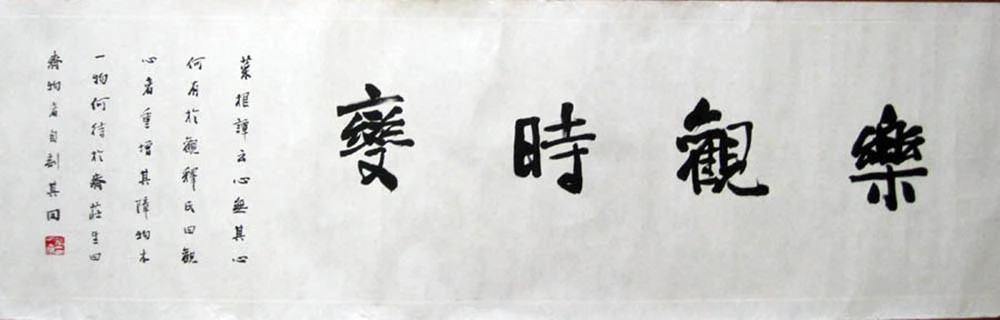 樂觀時變
菜根譚云心無其心
何有於觀釋氏曰觀
心者重增其障物本
一物何待於齊莊生曰
齊物者自剖其同